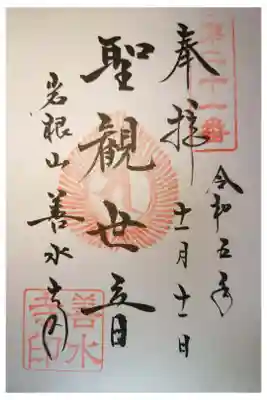 第二十一番
奉拝
令和五年
十一月十一日
聖観世音
岩根山
善水寺
善水寺印